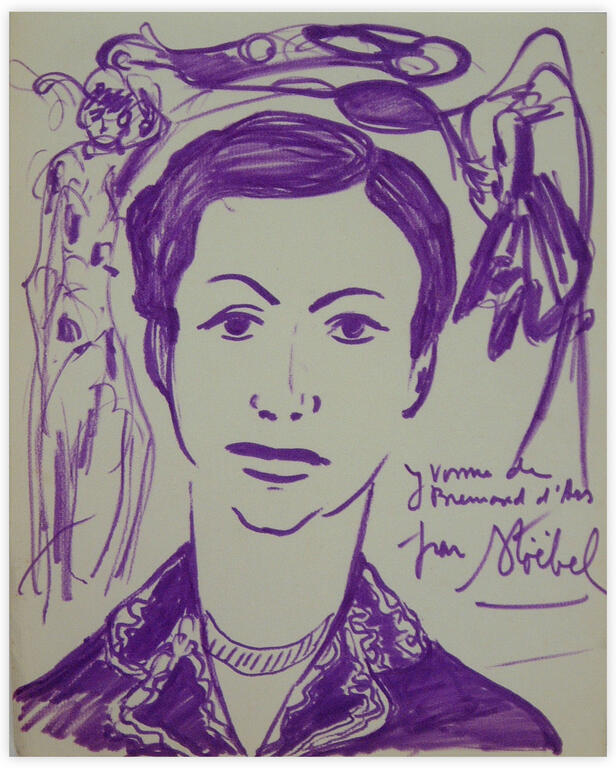 yvonne de
Bremond d'Ars
par Stoëbel